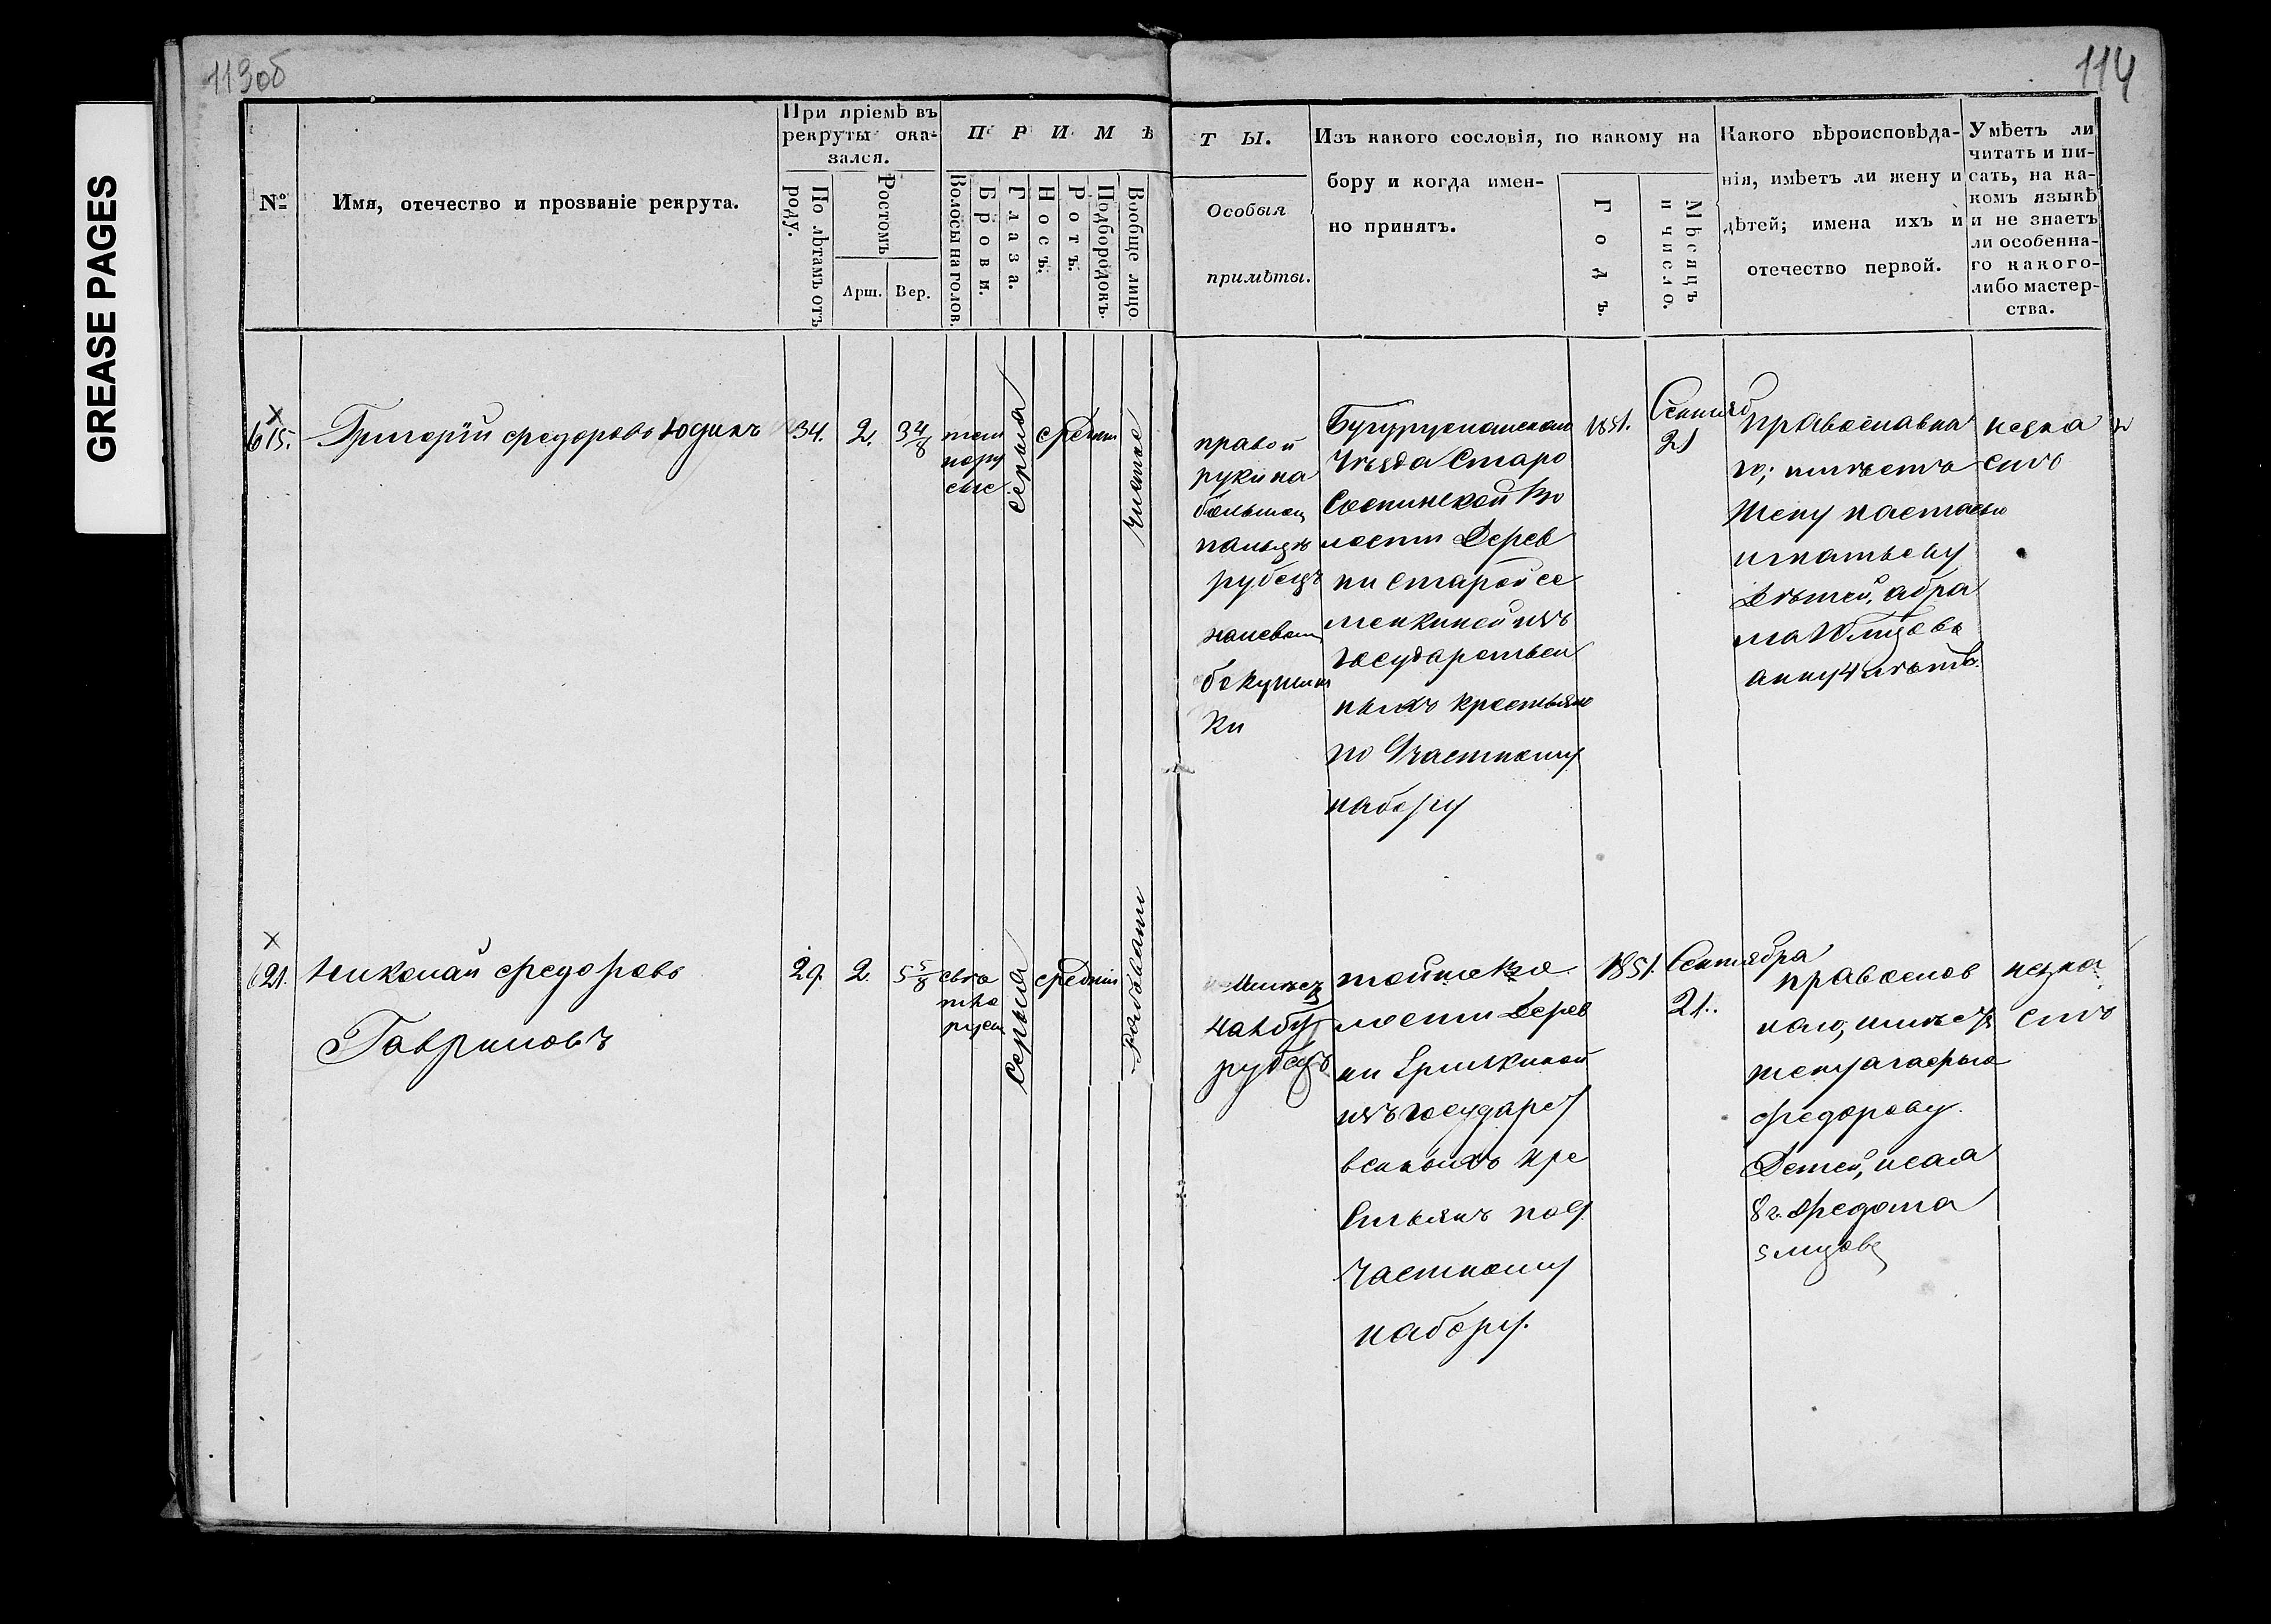 113об
114
GREASE PAGES
№
Имя, отечество и прозваніе рекрута.
При пріемѣ въ
рекруты ока-
зался.
По лѣтамъ отъ
роду.
Ростомъ
Арш.
Вер.
ПРИМѢ
Волосы на голов.
Брови.
Глаза.
Носъ.
Ротъ.
Подбородокъ.
Вообще лицо
ТЫ.
Особыя
примѣты.
Изъ какого сословія, по какому на
бору и когда имен-
но принятъ.
Годъ.
Мѣсяцъ
и число.
Какого вѣроисповѣда-
нія, имѣетъ ли жену и
дѣтей; имена ихъ и
отечество первой.
Умѣетъ ли
читать и пи-
сать, на ка-
комъ языкѣ
и не знаетъ
ли особенна-
го какого-
либо мастер-
ства.
615.
Григорій Федоровъ Юдинъ
34.
2.
3 4/8
темно
русые
серыя
средніи
чистое
правой
руки на
большом
пальцѣ
рубецъ
Бугурусланскаго
Уѣзда Старо
Соснинской во
лости Дерев
ни Старой Се
менкиной изъ
государствен
ныхъ крестьянъ
по Частному
набору
1851.
Сентяб
21
православна
го; имѣетъ
жену настасью
игнатьеву
Дѣтей, абра
ма
анну 4 лѣтъ.
незна
етъ
621.
Николай Федоровъ
Гавриловъ
29.
2.
5 5/8
свѣт
ло
русы
серыя
средніи
рябоват
имѣе
на лбу
рубецъ
тойже во
лости Дерев
ни
изъ государст
венныхъ кре
стьянъ по
частному
набору.
1851.
Сентября
21.
православ
наго, имѣет
жену агафью
Федорову.
Детей, исая
8 г. Федота
незна
етъ